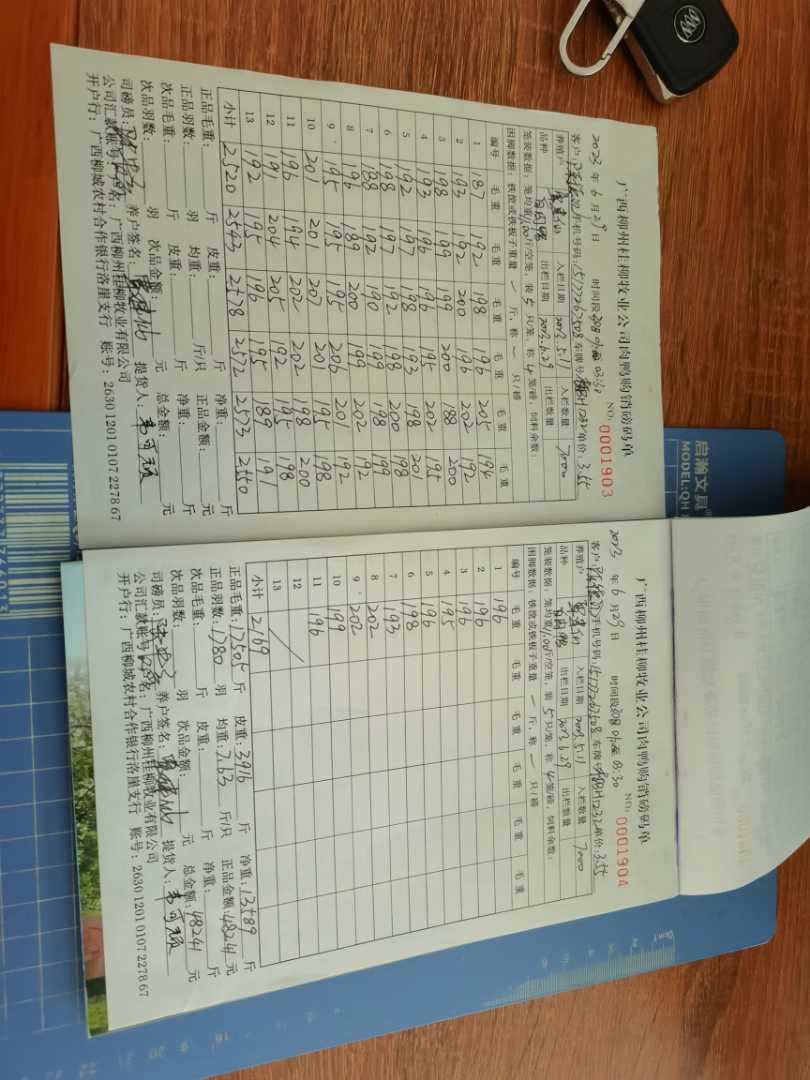 广西柳州桂柳牧业公司肉鸭购销磅码单
NO: 0001903
2023 年 6 月 29 日 时间段
客户: 手机号码: 15177267508 车牌号 单价: 3.55
养殖户 入栏日期 2023.5.11 入栏数量 7000
品种 出栏日期 2023.6.29 出栏数量
笼装数据: 笼均重11.00斤/空笼, 装 5 只/笼, 称 4 笼/磅, 饲料余数:
困脚数据: 铁筐或铁板子重量 一 斤, 称 一 只/磅
编号 毛重 毛重 毛重 毛重 毛重 毛重
1 187 192 198 196 205 194
2 193 192 200 196 202 192
3 198 199 199 200 188 200
4 193 196 196 195 202 195
5 192 197 198 193 198 201
6 198 197 192 198 200 198
7 188 192 190 199 198 199
8 196 189 200 199 202 192
9 195 195 195 206 201 192
10 201 201 207 201 195 198
11 196 194 202 202 198 200
12 191 204 205 192 195 198
13 192 195 196 195 189 191
小计 2520 2543 2578 2572 2573 2550
正品毛重: 斤 皮重: 斤 净重: 斤
正品羽数: 羽 均重: 斤/只 正品金额: 元
次品毛重: 斤 皮重: 斤 净重: 斤
次品羽数: 羽 次品金额: 元 总金额: 元
司磅员: 养户签名: 提货人:
公司汇款账号: 户名: 广西柳州桂柳牧业有限公司
开户行: 广西柳城农村合作银行洛崖支行 账号: 2630 1201 0107 2278 67
广西柳州桂柳牧业公司肉鸭购销磅码单
NO: 0001904
2023 年 6 月 29 日 时间段
客户 手机号码: 15177267508 车牌号 单价: 3.55
养殖户 入栏日期 2023.5.11 入栏数量 7000
品种 出栏日期 2023.6.29 出栏数量
笼装数据: 笼均重11.00斤/空笼, 装 5 只/笼, 称 4 笼/磅, 饲料余数:
困脚数据: 铁筐或铁板子重量 一 斤, 称 一 只/磅
编号 毛重 毛重 毛重 毛重 毛重 毛重
1 196
2 196
3 196
4 195
5 196
6 198
7 193
8 202
9 202
10 199
11 196
12
13
小计 2169
正品毛重: 17505 斤 皮重: 3916 斤 净重: 13589 斤
正品羽数: 1780 羽 均重: 7.63 斤/只 正品金额: 48241 元
次品毛重: 斤 皮重: 斤 净重: 斤
次品羽数: 羽 次品金额: 元 总金额: 48241 元
司磅员: 养户签名: 提货人:
公司汇款账号: 户名: 广西柳州桂柳牧业有限公司
开户行: 广西柳城农村合作银行洛崖支行 账号: 2630 1201 0107 2278 67
启瀚文具
MODEL:QH